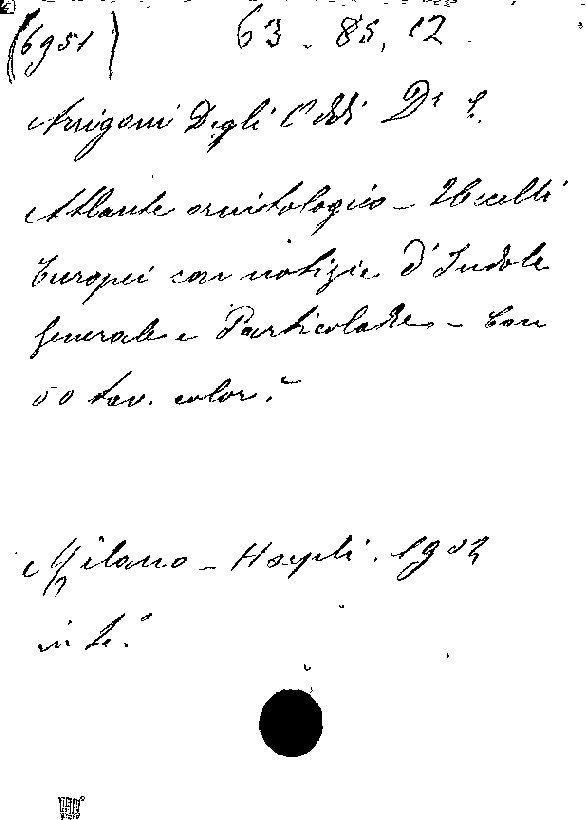 (6951) 63. 85. 12
Arrigoni Degli Oddi Dr E.
Atlante ornitologico - Uccelli
Europei con notizie d'Indole
generale e Particolare - Con
50 tav. color.e
Milano - Hoepli. 1902
in 4.°